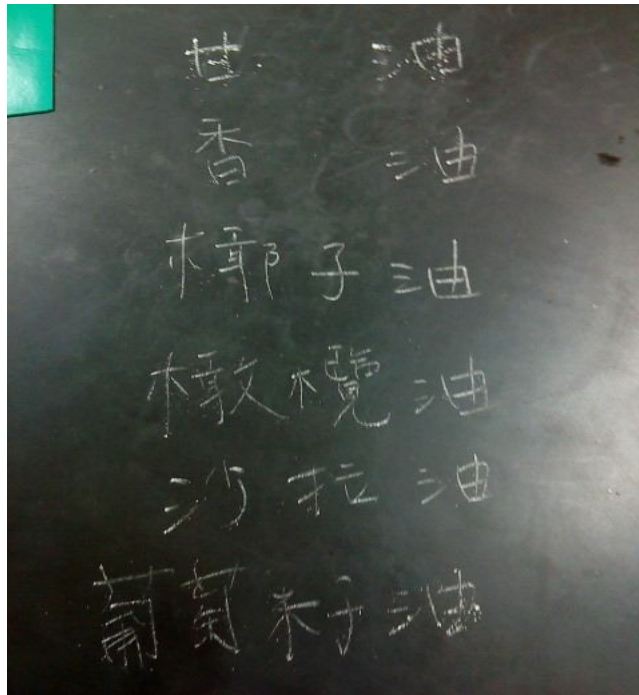 甘油
香油
椰子油
橄欖油
沙拉油
葡萄籽油